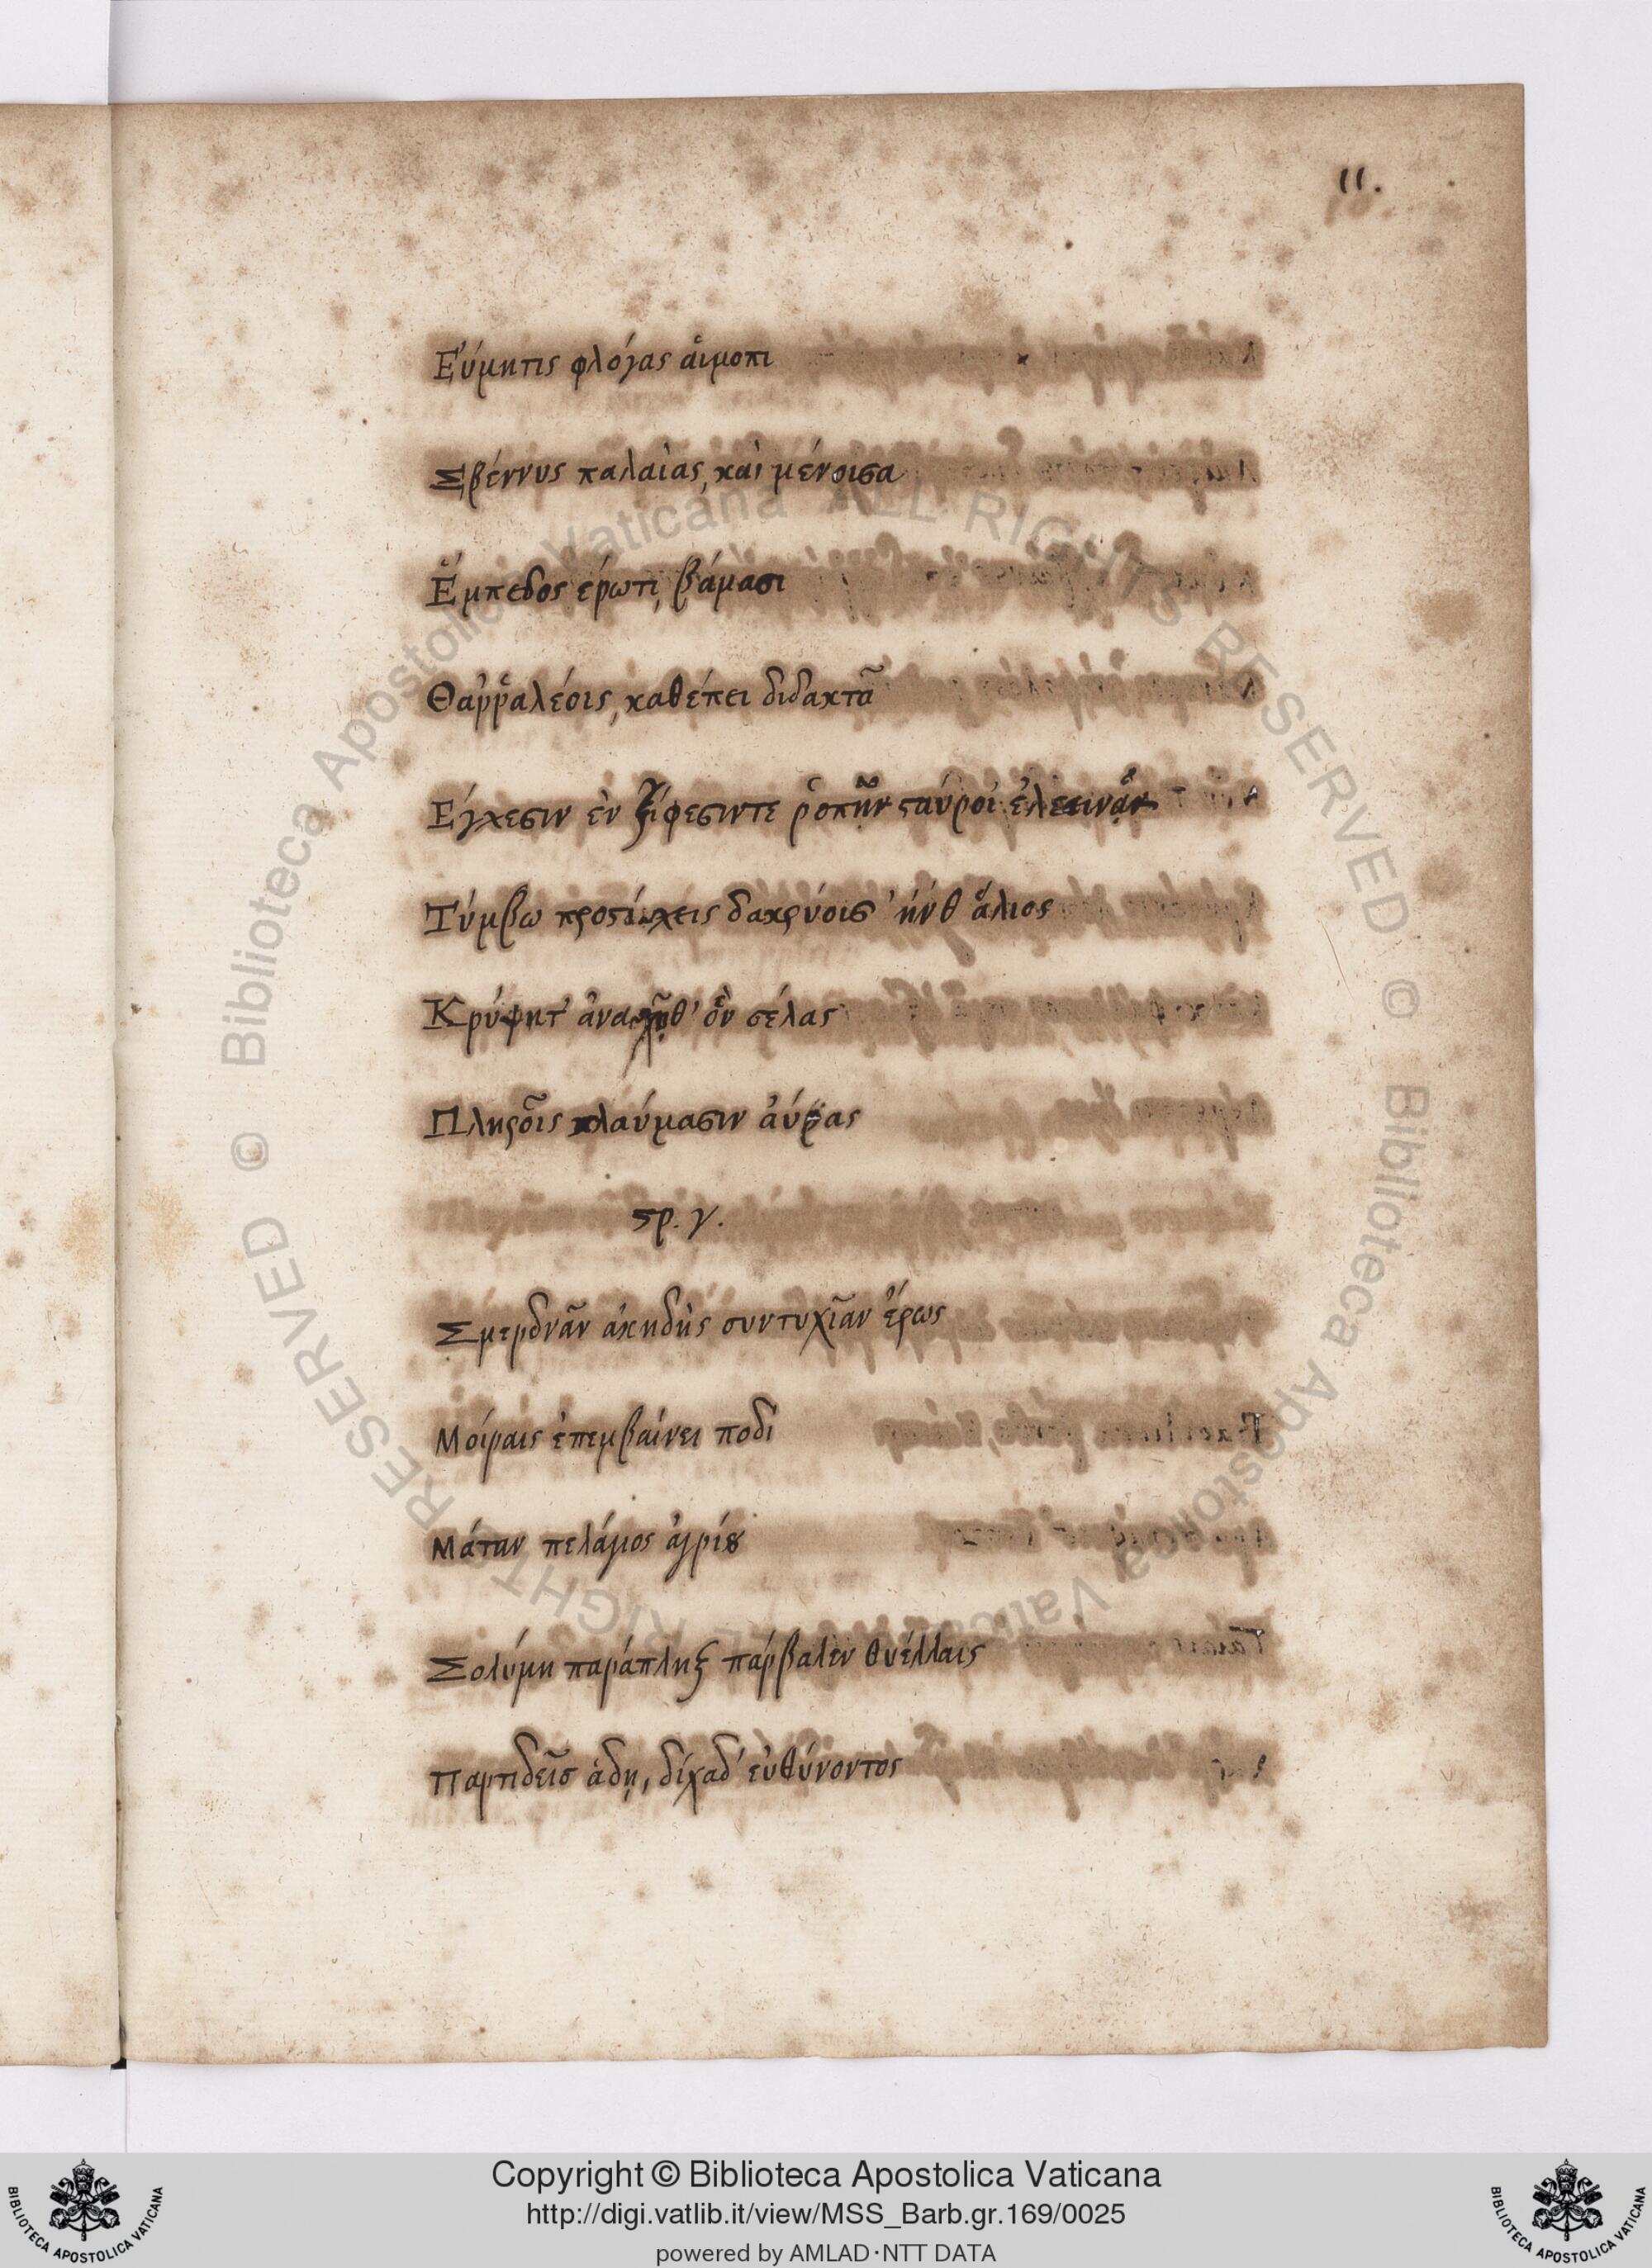 11.
Εὐμητις φλόγας αἵμοπι
Σβέννυς παλαίας, καὶ μένοισα
Ἔμπεδος ἐρωτι, βάμασι
Θαῤῥαλέοις, καθέπει διδακτᾶ
Εγχεσιν ἐν ξίφεσιντε ῥοπῆν ϛαύροι ἐλεεινᾶν
Τύμβω δακρύοις ἠύθ ἅλιος
Κρύφητ' ὃν σέλας
Πληϛοῖς κλαύμασιν ἀύρας
ϛρ. γ.
Σμερδνᾶν ἀκηδὴς συντυχίᾶν ἔρως
Μοίραις ἐπεμβαίνει ποδι
Μάταν πελάγιος ἀγρίȣ
Σολύμη παράπληξ πάρβαλεν θυέλλαις
Παρπιδεῖσ ἄδῃ, δίχαδ' ἐυθύνοντος
Copyright © Biblioteca Apostolica Vaticana
http://digi.vatlib.it/view/MSS_Barb.gr.169/0025
powered by AMLAD·NTT DATA
BIBLIOTECA APOSTOLICA VATICANA
BIBLIOTECA APOSTOLICA VATICANA
© Biblioteca Apostolica Vaticana ALL RIGHTS RESERVED
© Biblioteca Apostolica Vaticana ALL RIGHTS RESERVED